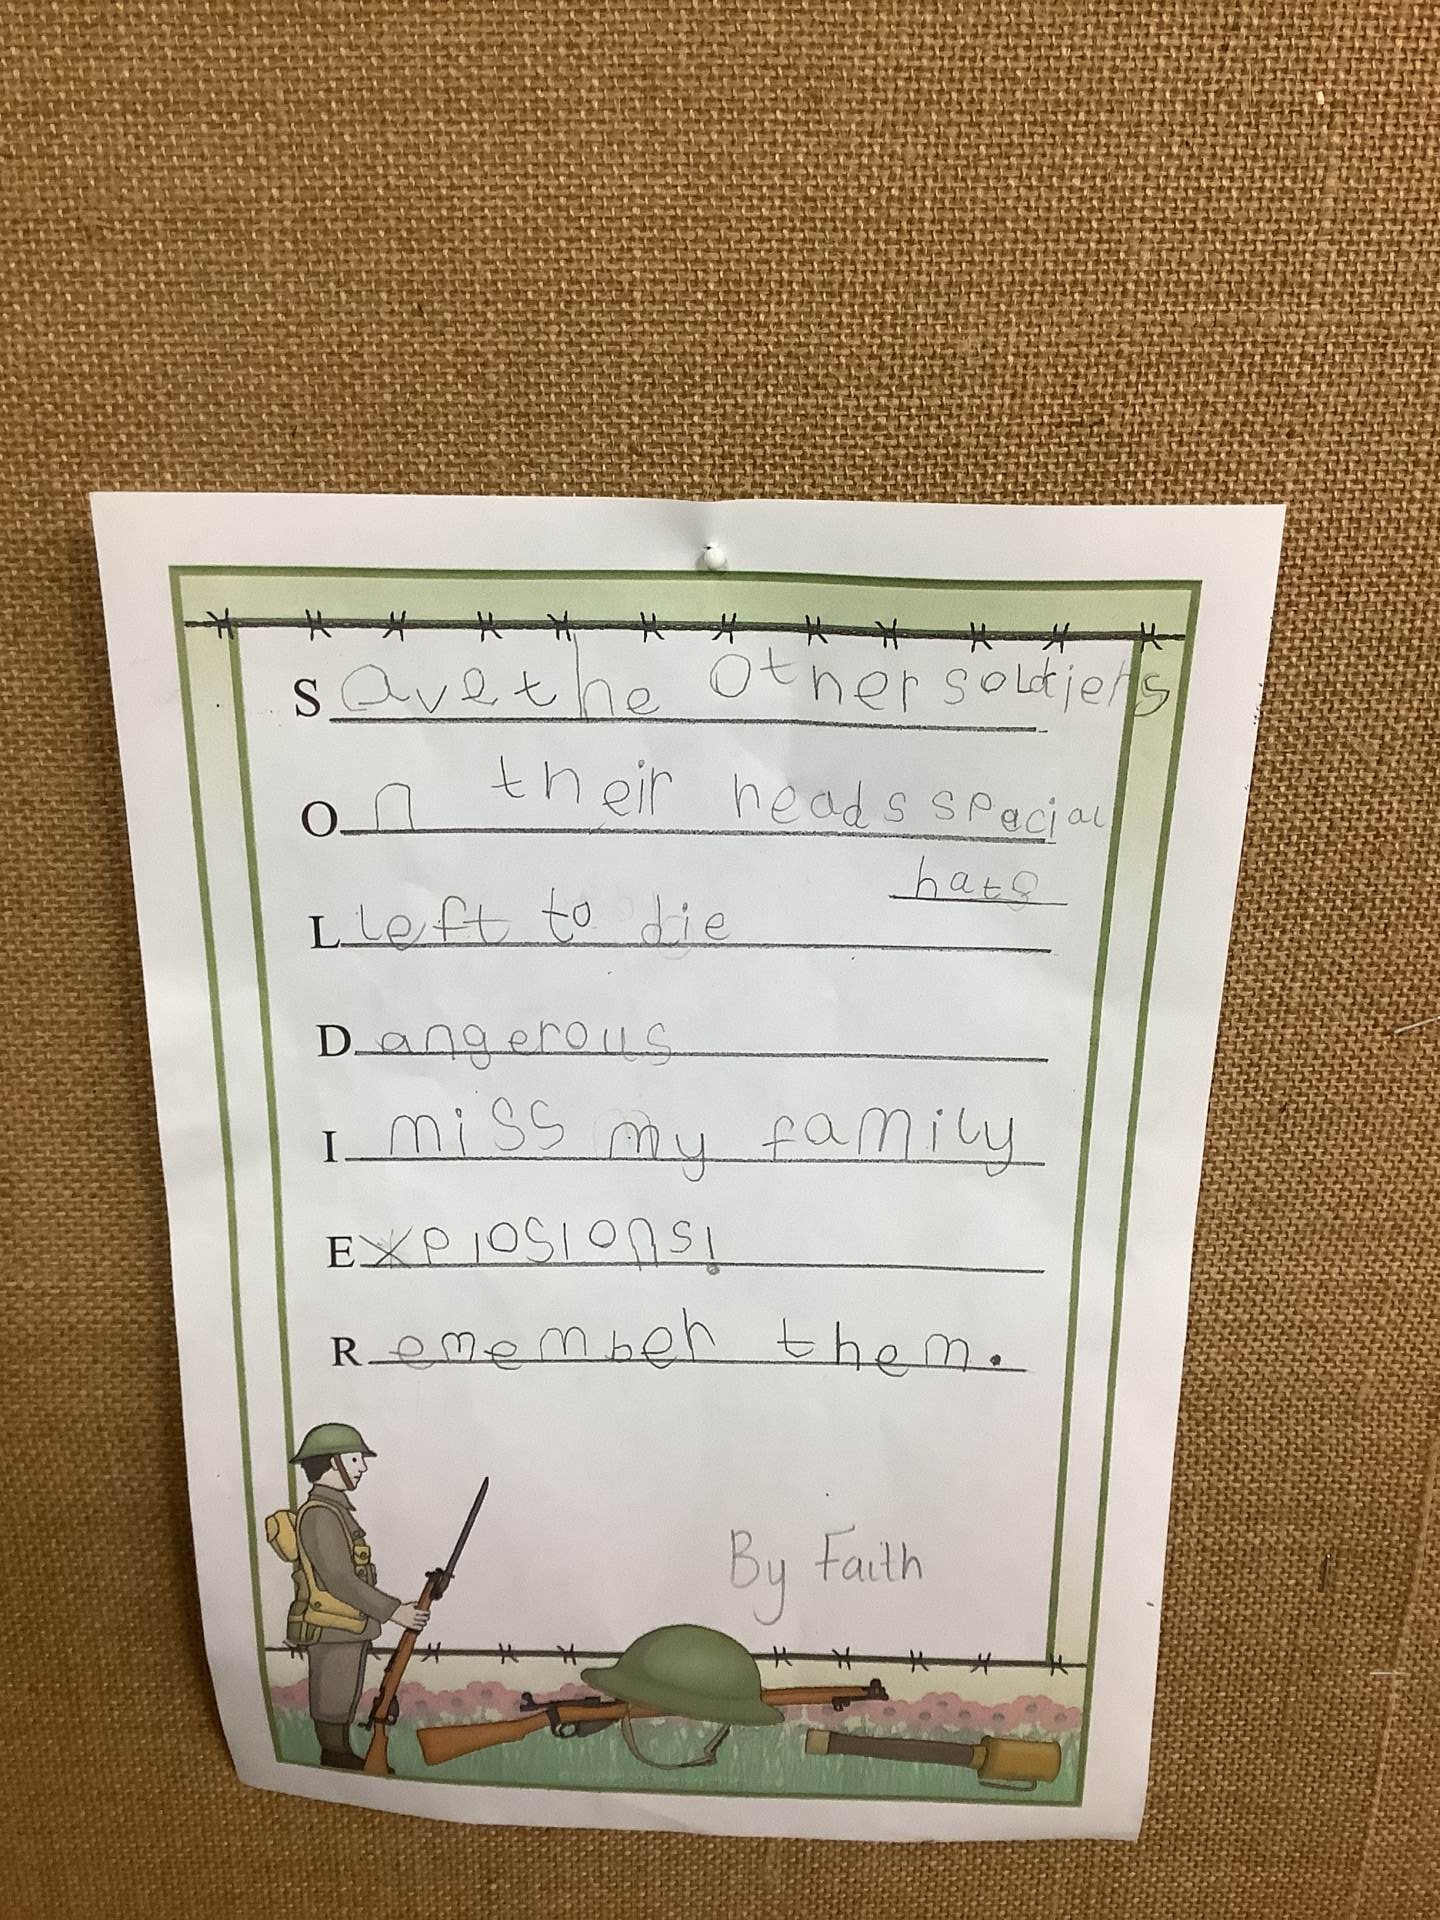 Save the other soldiers
On their heads spacial
hats
Lleft to die
Dangerous
I miss my family
Explosions!
Remember them.
By Faith